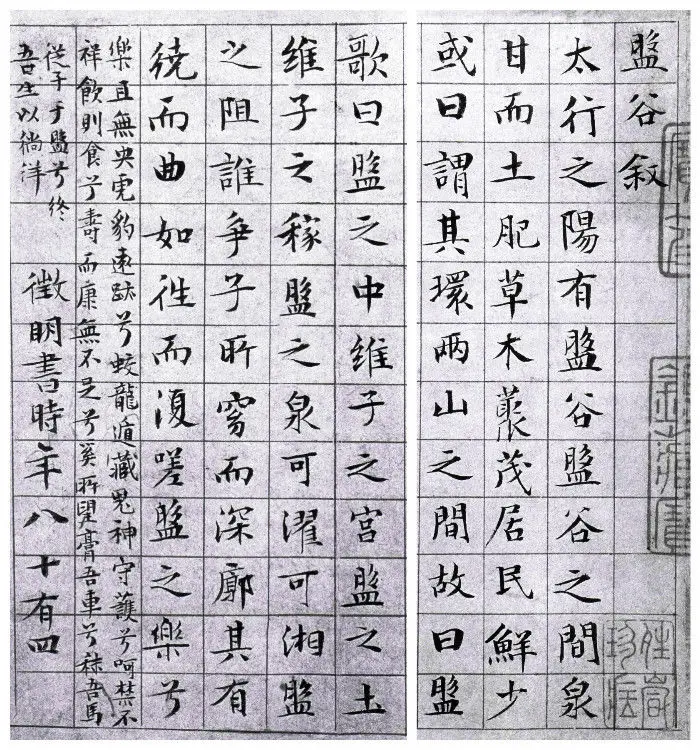 盤谷敘
太行之陽有盤谷盤谷之間泉
甘而土肥草木藂茂居民鮮少
或曰謂其環兩山之間故曰盤
歌曰盤之中維子之宮盤之土
維子之稼盤之泉可濯可湘盤
之阻誰爭子所窈而深廓其有
繞而曲如往而復嗟盤之樂兮
樂且無央虎豹遠跡兮蛟龍遁藏鬼神守護兮呵禁不
祥飲則食兮壽而康無不足兮奚所望膏吾車兮秣吾馬
從子于盤兮終
吾生以徜徉
徵明書時年八十有四